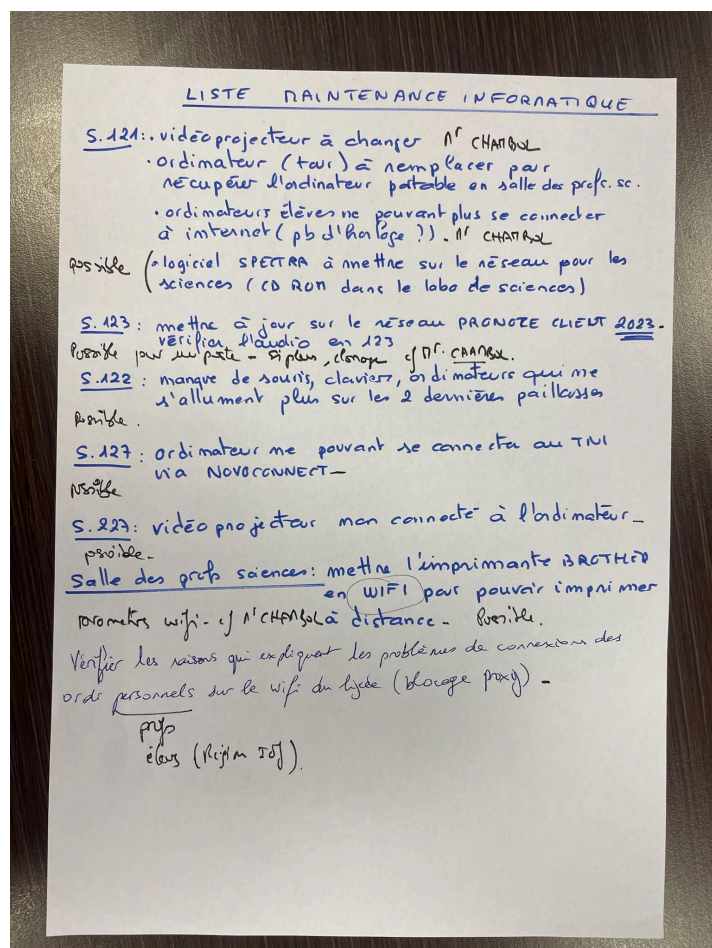 LISTE MAINTENANCE INFORMATIQUE
S.121: . vidéoprojecteur à changer Mr CHAMBOL
. ordinateur (tour) à remplacer par
récupérer l'ordinateur portable en salle des profs. sc.
. ordinateurs élèves ne pouvant plus se connecter
à internet (pb d'horloge ?). Mr CHAMBOL
possible ( . logiciel SPECTRA à mettre sur le réseau pour les
sciences (CD ROM dans le labo de sciences)
S.123 : mettre à jour sur le réseau PRONOTE CLIENT 2023.
vérifier l'audio en 123
Possible pour un poste - si plus, clonage cf Mr. CHAMBOL.
S.122 : manque de souris, claviers, ordinateurs qui ne
s'allument plus sur les 2 dernières paillasses
Possible.
S.127 : ordinateur ne pouvant se connecter au TNI
via NOVOCONNECT -
possible
S.227 : vidéoprojecteur non connecté à l'ordinateur -
possible -
Salle des profs sciences : mettre l'imprimante BROTHER
en WIFI pour pouvoir imprimer
parametres wifi - cf Mr CHAMBOL à distance - Possible.
Vérifier les raisons qui expliquent les problèmes de connexions des
ordi personnels sur le wifi du lycée (blocage proxy) -
profs
élèves (Région IdF).